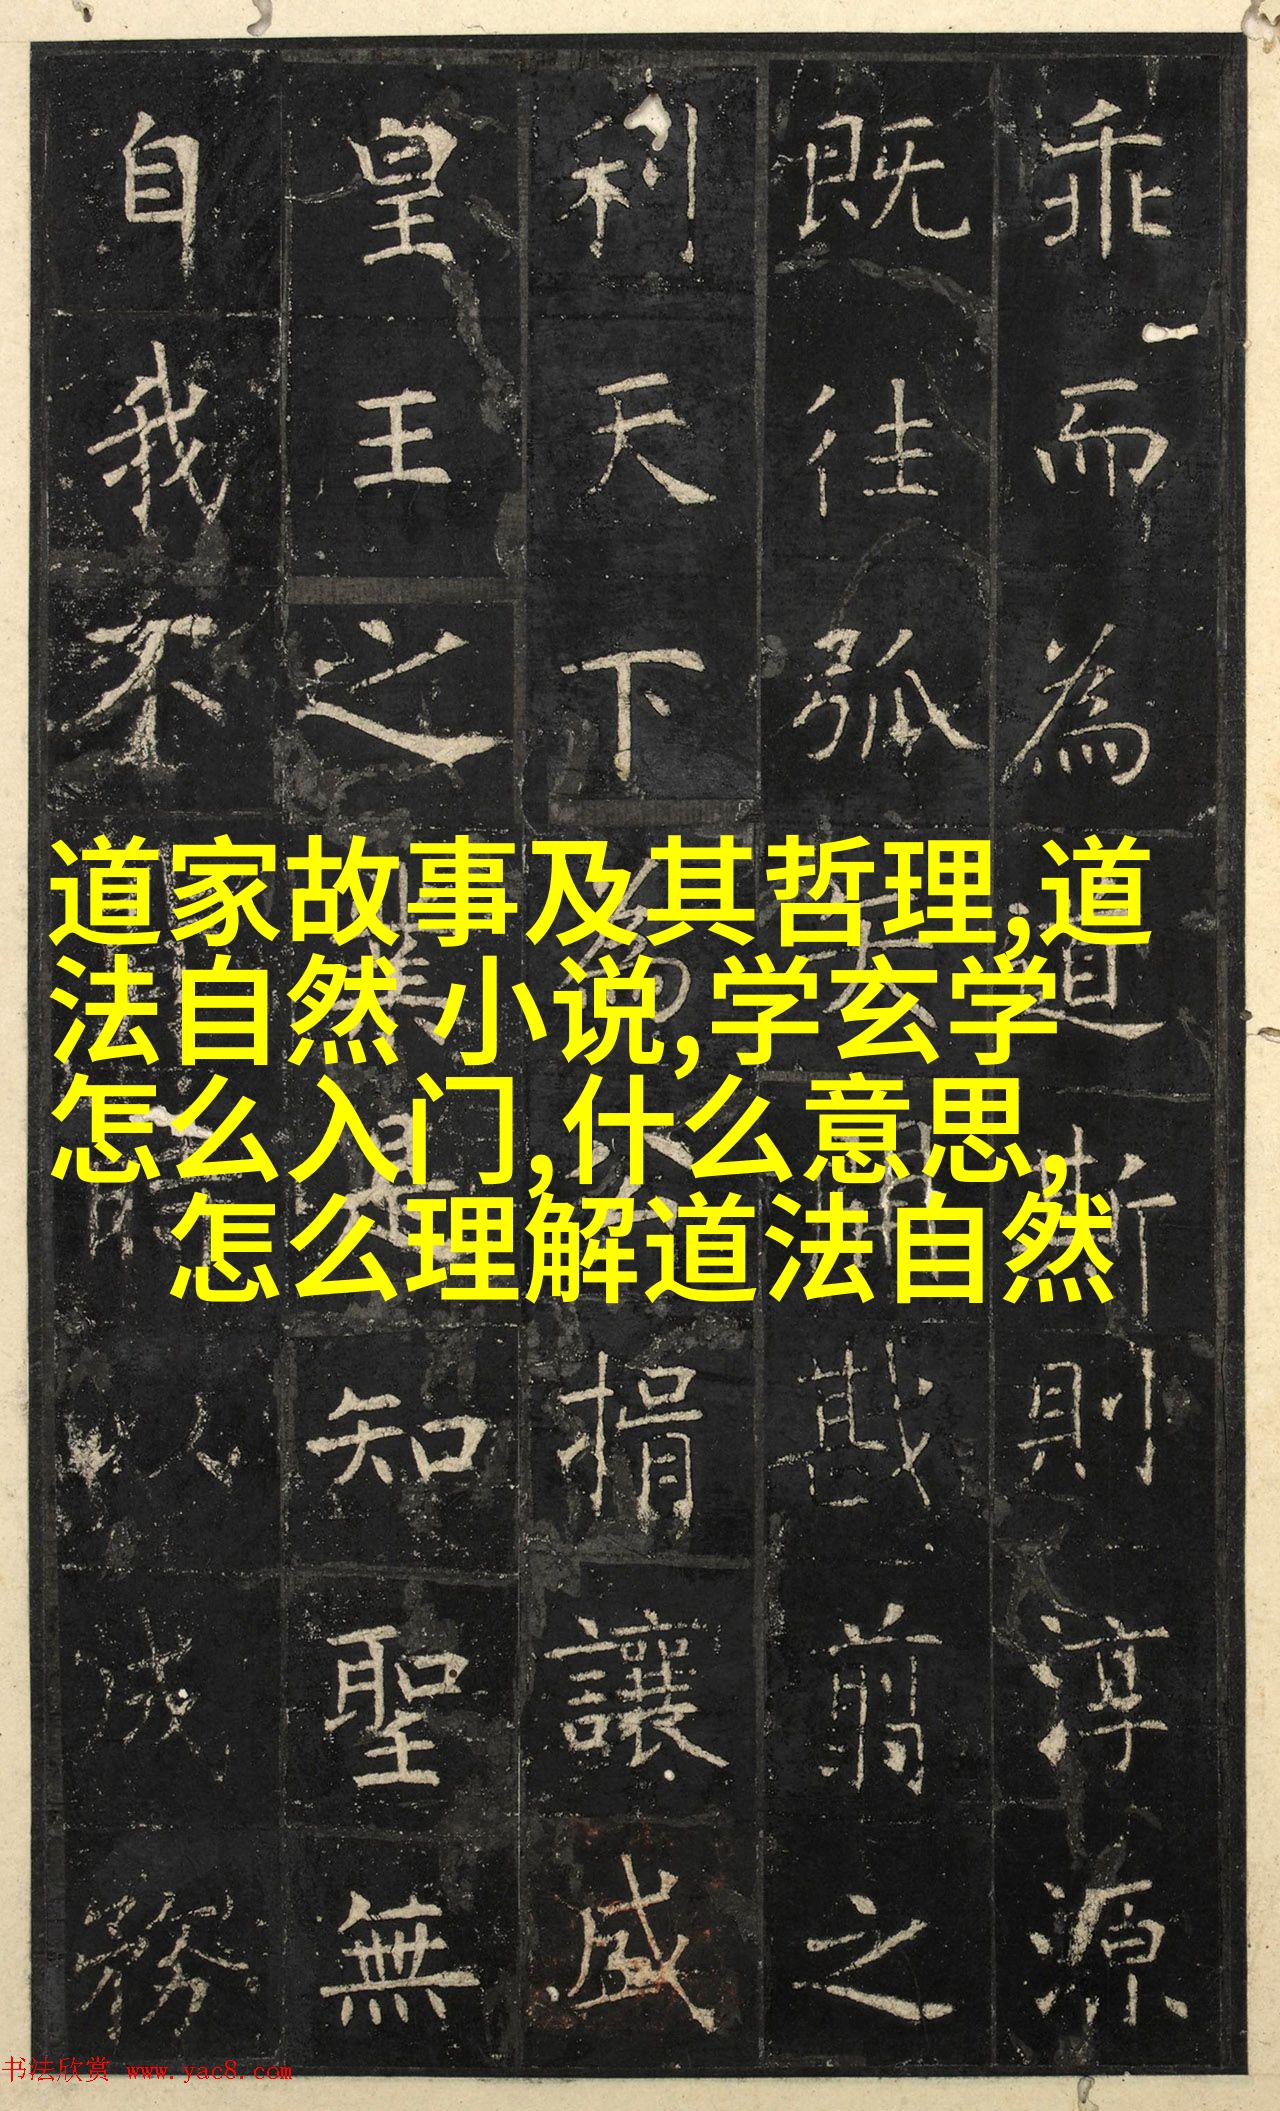 乖而為道斯則淳源
既往弧戡翦之
利天下為公捐讓
皇王之是知聖無
自我不以成務
道家故事及其哲理,道
法自然 小说,学玄学
怎么入门,什么意思,
怎么理解道法自然
书法欣赏 www.yac8.com